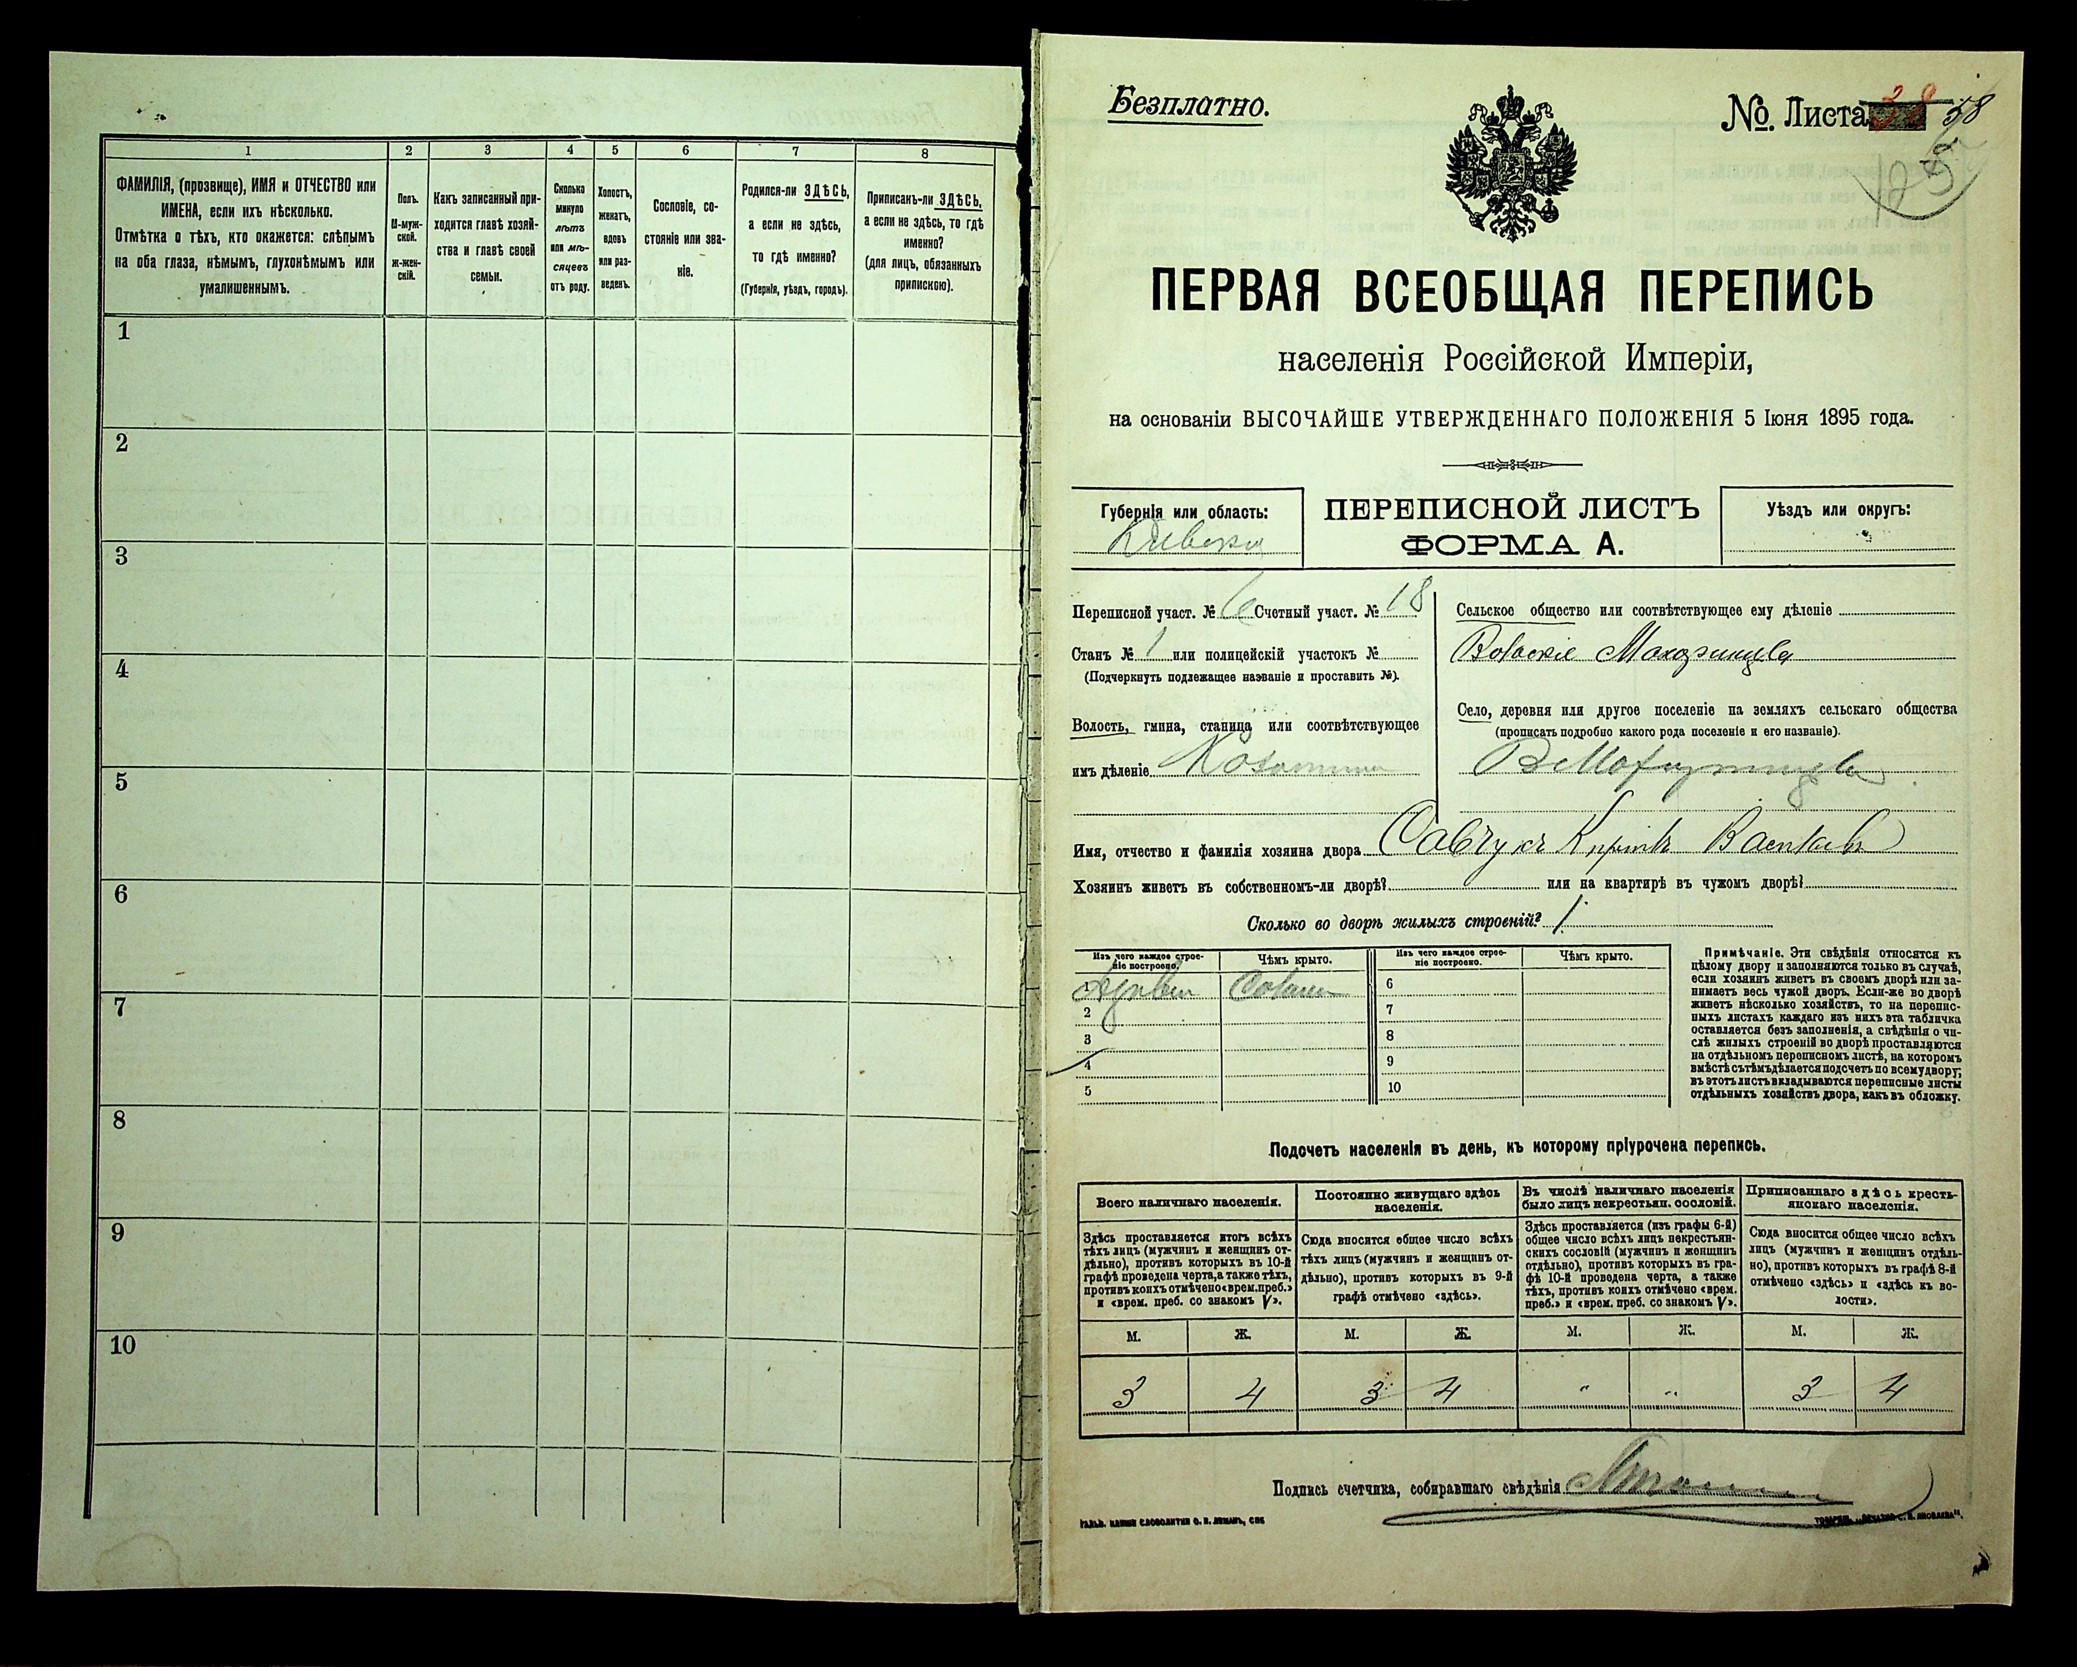 1
2
3
4
5
6
7
8
ФАМИЛІЯ, (прозвище), ИМЯ и ОТЧЕСТВО или
ИМЕНА, если ихъ нѣсколько.
Отмѣтка о тѣхъ, кто окажется: слѣпымъ
на оба глаза, нѣмымъ, глухонѣмымъ или
умалишеннымъ.
Полъ.
М-муж-
ской.
Ж-жен-
скій.
Какъ записанный при-
ходится главѣ хозяй-
ства и главѣ своей
семьи.
Сколько
минуло
лѣтъ
или мѣ-
сяцевъ
отъ роду.
Холостъ,
женатъ,
вдовъ
или раз-
веденъ.
Сословіе, со-
стояніе или зва-
ніе.
Родился-ли ЗДѢСЬ,
а если не здѣсь,
то гдѣ именно?
(Губернія, уѣздъ, городъ).
Приписанъ-ли ЗДѢСЬ,
а если не здѣсь, то гдѣ
именно?
(для лицъ, обязанныхъ
припискою).
1
2
3
4
5
6
7
8
9
10
Безплатно.
№. Листа 58
ПЕРВАЯ ВСЕОБЩАЯ ПЕРЕПИСЬ
населенія Россійской Имперіи,
на основаніи ВЫСОЧАЙШЕ УТВЕРЖДЕННАГО ПОЛОЖЕНІЯ 5 Іюня 1895 года.
Губернія или область:
Кіевская
ПЕРЕПИСНОЙ ЛИСТЪ
ФОРМА А.
Уѣздъ или округъ:
Переписной участ. № 6 Счетный участ. № 18
Станъ № 1 или полицейскій участокъ №
(Подчеркнуть подлежащее названіе и проставить №).
Волость, гмина, станица или соотвѣтствующее
имъ дѣленіе
Сельское общество или соотвѣтствующее ему дѣленіе
Село, деревня или другое поселеніе на земляхъ сельскаго общества
(прописать подробно какого рода поселеніе и его названіе).
Имя, отчество и фамилія хозяина двора Савчукъ
Хозяинъ живетъ въ собственномъ-ли дворѣ? или на квартирѣ въ чужомъ дворѣ?
Сколько во дворѣ жилыхъ строеній? 1
Изъ чего каждое строе-
ніе построено.
Чѣмъ крыто.
Изъ чего каждое строе-
ніе построено.
Чѣмъ крыто.
1
2
3
4
5
6
7
8
9
10
Примѣчаніе. Эти свѣдѣнія относятся къ
цѣлому двору и заполняются только въ случаѣ,
если хозяинъ живетъ въ своемъ дворѣ или за-
нимаетъ весь чужой дворъ. Если-же во дворѣ
живетъ нѣсколько хозяйствъ, то на перепис-
ныхъ листахъ каждаго изъ нихъ эта табличка
оставляется безъ заполненія, а свѣдѣнія о чи-
слѣ жилыхъ строеній во дворѣ проставляются
на отдѣльномъ переписномъ листѣ, на которомъ
вмѣстѣ съ тѣмъ дѣлается подсчетъ по всему двору;
въ этотъ листъ вкладываются переписные листы
отдѣльныхъ хозяйствъ двора, какъ въ обложку.
Подсчетъ населенія въ день, къ которому пріурочена перепись.
Всего наличнаго населенія.
Постоянно живущаго здѣсь
населенія.
Въ числѣ наличнаго населенія
было лицъ некрестьян. сословій.
Приписаннаго здѣсь кресть-
янскаго населенія.
Здѣсь проставляется итогъ всѣхъ
тѣхъ лицъ (мужчинъ и женщинъ от-
дѣльно), противъ которыхъ въ 10-й
графѣ проведена черта, а также тѣхъ,
противъ коихъ отмѣчено «врем. преб.»
и «врем. преб. со знакомъ V».
Сюда вносится общее число всѣхъ
тѣхъ лицъ (мужчинъ и женщинъ от-
дѣльно), противъ которыхъ въ 9-й
графѣ отмѣчено «здѣсь».
Здѣсь проставляется (изъ графы 6-й)
общее число всѣхъ лицъ некрестьян-
скихъ сословій (мужчинъ и женщинъ
отдѣльно), противъ которыхъ въ гра-
фѣ 10-й проведена черта, а также
тѣхъ, противъ коихъ отмѣчено «врем.
преб.» и «врем. преб. со знакомъ V».
Сюда вносится общее число всѣхъ
лицъ (мужчинъ и женщинъ отдѣль-
но), противъ которыхъ въ графѣ 8-й
отмѣчено «здѣсь» и «здѣсь въ во-
лости».
М. Ж. М. Ж. М. Ж. М. Ж.
3 4 3 4 " " 3 4
Подпись счетчика, собиравшаго свѣдѣнія